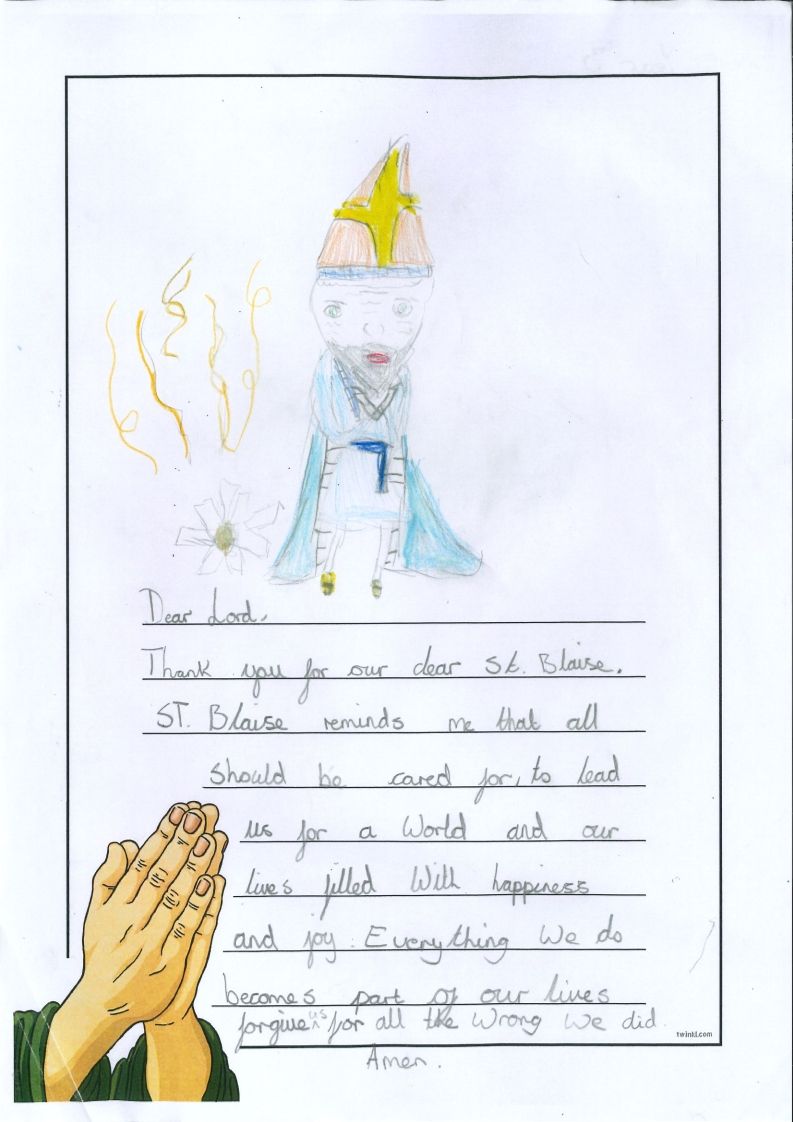 Dear Lord,
Thank you for our dear St. Blaise.
ST. Blaise reminds me that all
should be cared for, to lead
us for a World and our
lives filled With happiness
and joy. Everything We do
becomes part of our lives
forgive us for all the Wrong We did.
twinkl.com
Amen.